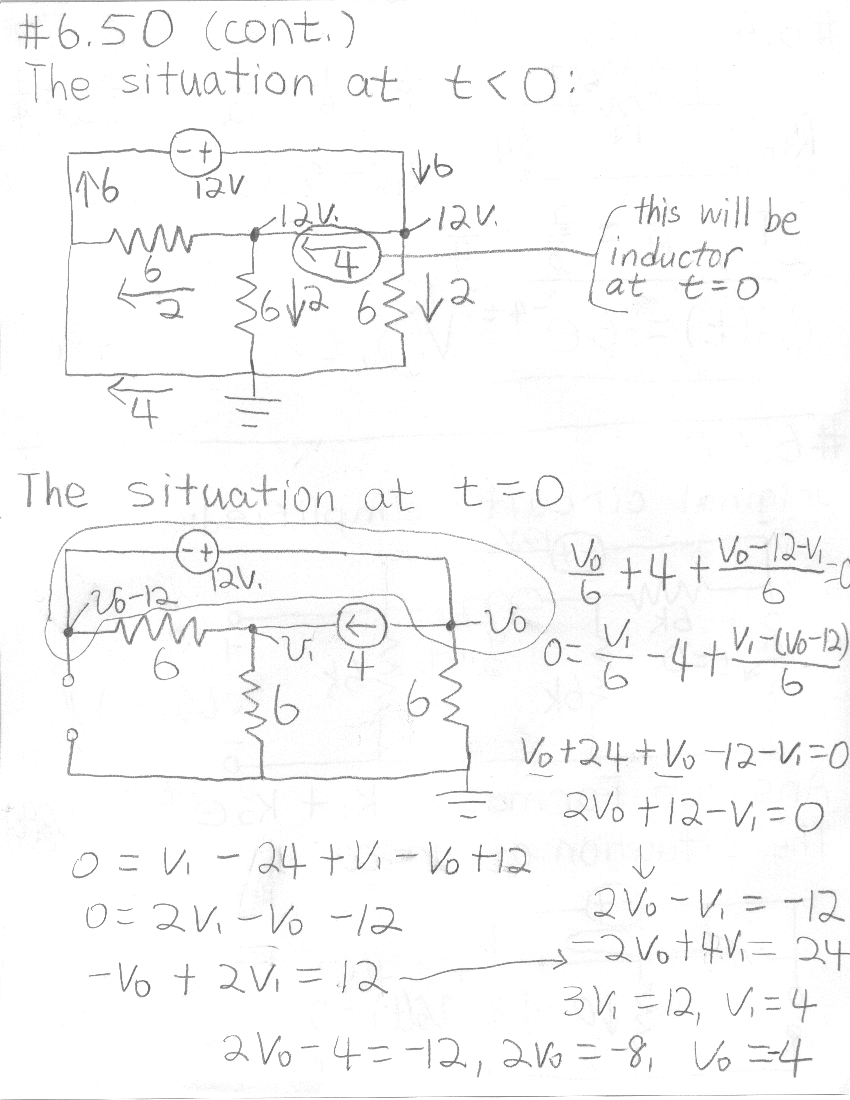 #6.50 (cont.)
The situation at t<0:
- +
12V
↑6
↓6
12V.
12V.
this will be
inductor
at t=0
← 4
6
← 2
6 ↓2
6 ↓2
← 4
The situation at t=0
- +
12V.
V0-12
V1
V0
6
← 4
6
6
V0/6 + 4 + (V0-12-V1)/6 = 0
0 = V1/6 - 4 + (V1-(V0-12))/6
V0+24+V0-12-V1=0
2V0+12-V1=0
↓
0 = V1 - 24 + V1 - V0 + 12
0 = 2V1 - V0 - 12
-V0 + 2V1 = 12 →
2V0 - V1 = -12
-2V0+4V1 = 24
3V1 = 12, V1 = 4
2V0 - 4 = -12, 2V0 = -8, V0 = -4